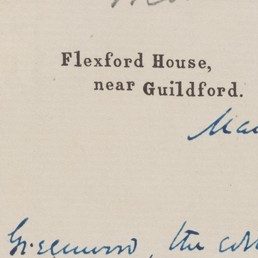 Flexford House,
near Guildford.
Greenwood, the